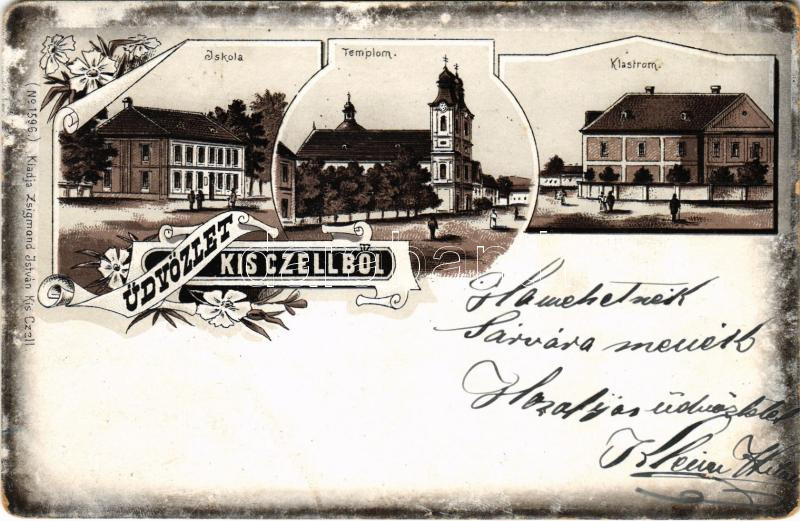 Iskola
Templom.
Klastrom.
(No 1596.) Kiadja Zsigmond István Kis Czell
ÜDVÖZLET
KISCZELLBŐL
Hamehetnék
Sárvára menék
üdvözlet
Klein